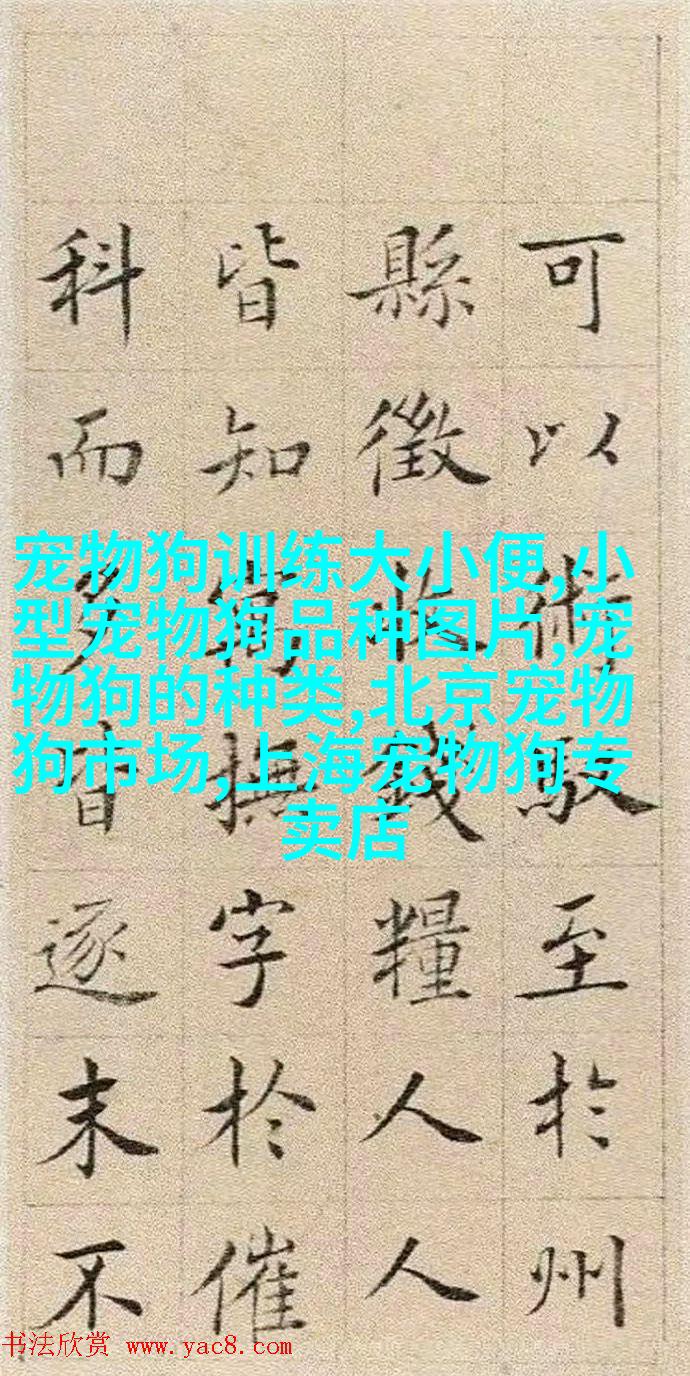 可以術馭至於州
縣徵收錢糧人人
皆知寓撫字於催
科而多皆逐末不
宠物狗训练大小便,小
型宠物狗品种图片,宠
物狗的种类,北京宠物
狗市场,上海宠物狗专
卖店
书法欣赏 www.yac8.com